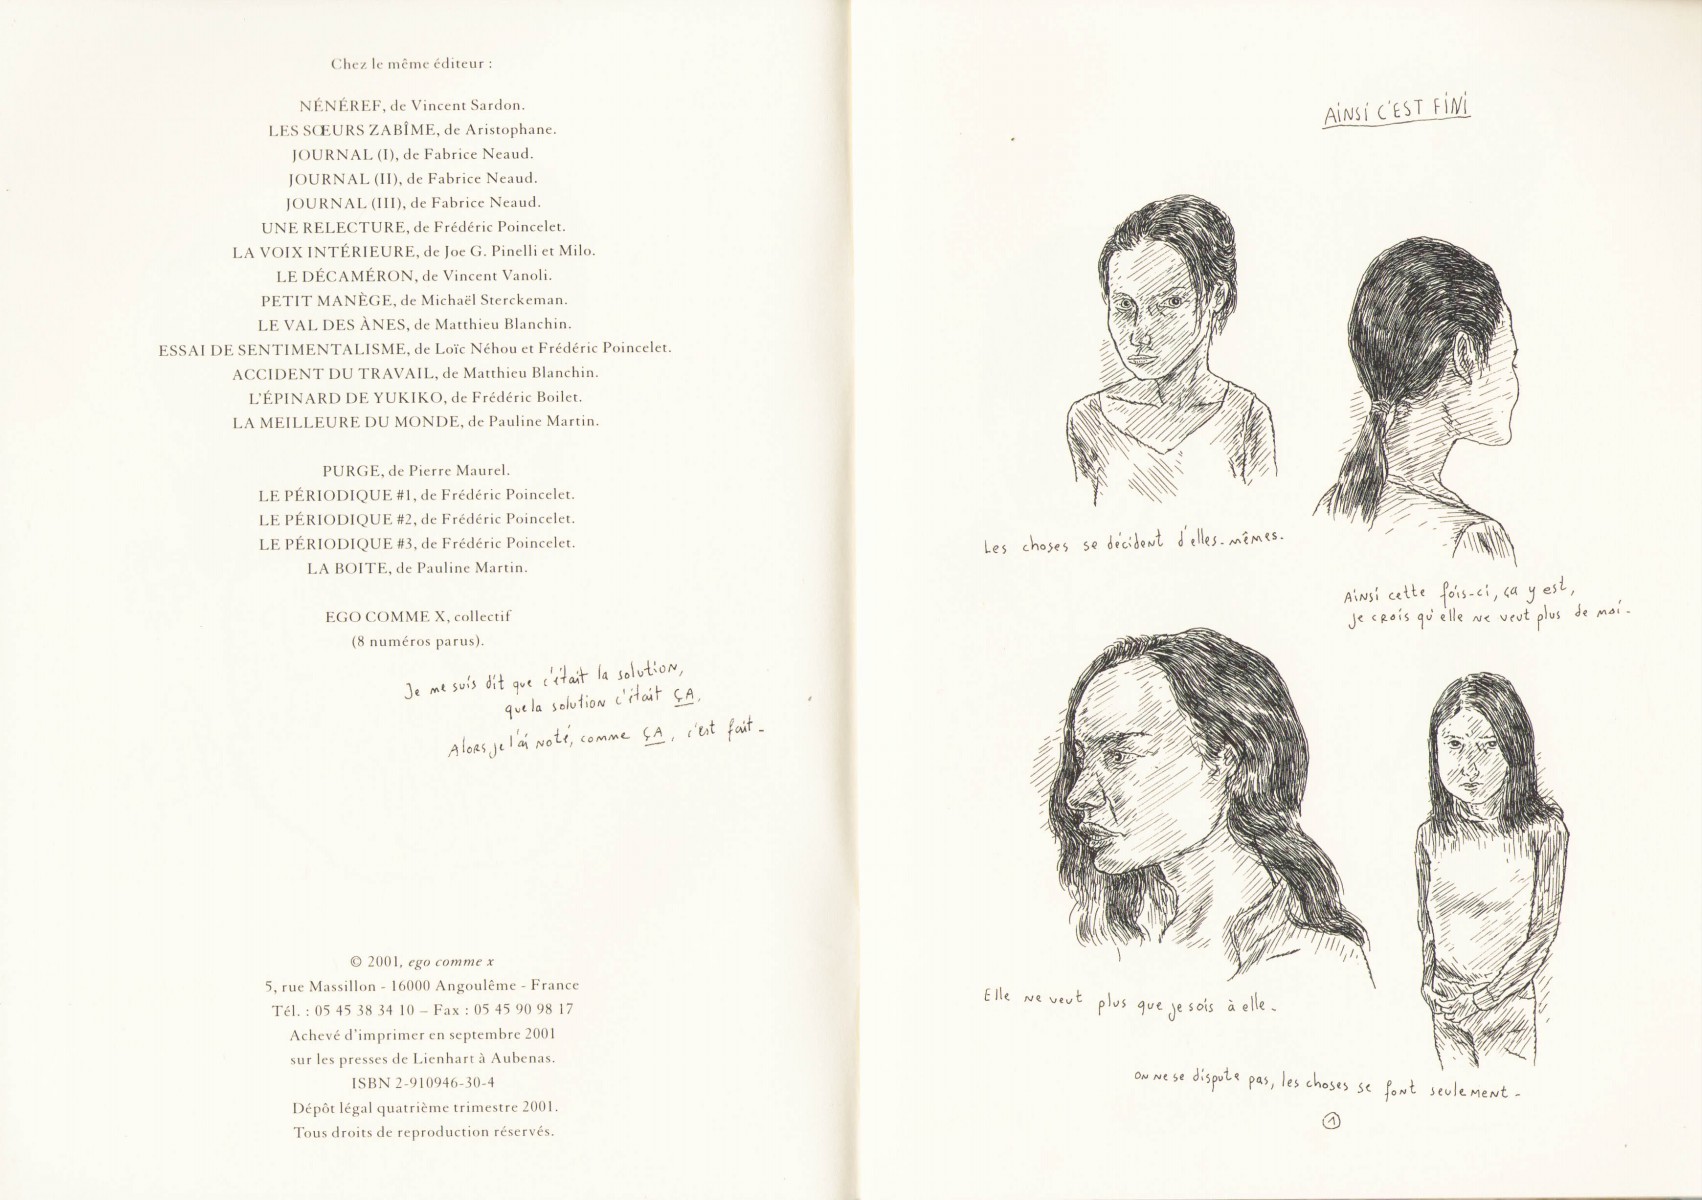 Chez le même éditeur :
NÉNÉREF, de Vincent Sardon.
LES SŒURS ZABÎME, de Aristophane.
JOURNAL (I), de Fabrice Neaud.
JOURNAL (II), de Fabrice Neaud.
JOURNAL (III), de Fabrice Neaud.
UNE RELECTURE, de Frédéric Poincelet.
LA VOIX INTÉRIEURE, de Joe G. Pinelli et Milo.
LE DÉCAMÉRON, de Vincent Vanoli.
PETIT MANÈGE, de Michaël Sterckeman.
LE VAL DES ÀNES, de Matthieu Blanchin.
ESSAI DE SENTIMENTALISME, de Loïc Néhou et Frédéric Poincelet.
ACCIDENT DU TRAVAIL, de Matthieu Blanchin.
L'ÉPINARD DE YUKIKO, de Frédéric Boilet.
LA MEILLEURE DU MONDE, de Pauline Martin.
PURGE, de Pierre Maurel.
LE PÉRIODIQUE #1, de Frédéric Poincelet.
LE PÉRIODIQUE #2, de Frédéric Poincelet.
LE PÉRIODIQUE #3, de Frédéric Poincelet.
LA BOITE, de Pauline Martin.
EGO COMME X, collectif
(8 numéros parus).
Je me suis dit que c'était la solution,
que la solution c'était ÇA.
Alors je l'ai noté, comme ÇA, c'est fait-
© 2001, ego comme x
5, rue Massillon - 16000 Angoulême - France
Tél. : 05 45 38 34 10 – Fax : 05 45 90 98 17
Achevé d'imprimer en septembre 2001
sur les presses de Lienhart à Aubenas.
ISBN 2-910946-30-4
Dépôt légal quatrième trimestre 2001.
Tous droits de reproduction réservés.
AiNSi C'EST FiNi
Les choses se décident d'elles-mêmes.
AiNSi cette fois-ci, ça y est,
je crois qu'elle ne veut plus de moi-
Elle ne veut plus que je sois à elle-
ON NE se dispute pas, les choses se font seulement-
1